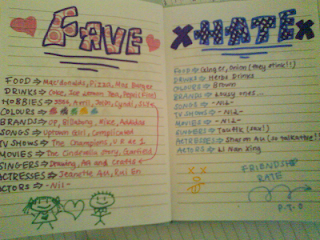 FAVE
FOOD ⇒ Mac' Donalds, Pizza, Mos Burger
DRINKS ⇒ Coke, Ice Lemon Tea, Pepsi
HOBBIES ⇒
COLOURS ⇒
BRANDS ⇒ OP, Billabong, Nike, Adidas
SONGS ⇒ Uptown Girl, Complicated
TV SHOWS ⇒ The Champions,
MOVIES ⇒ The Cinderella Story, Garfield
SINGERS ⇒ Drawing, Art and Crafts
ACTRESSES ⇒ Jeanette Aw, Rui En
ACTORS ⇒ -Nil-
HATE
FOOD ⇒ Onion
DRINKS ⇒ Herbs Drinks
COLOURS ⇒ Brown
BRANDS ⇒
SONGS ⇒ -Nil-
TV SHOWS ⇒ -Nil-
MOVIES ⇒ -Nil-
SINGERS ⇒ Taufik
ACTRESSES ⇒ Sharon Au
ACTORS ⇒ Li Nan Xing
FRIENDSHIP
RATE
P.T.O